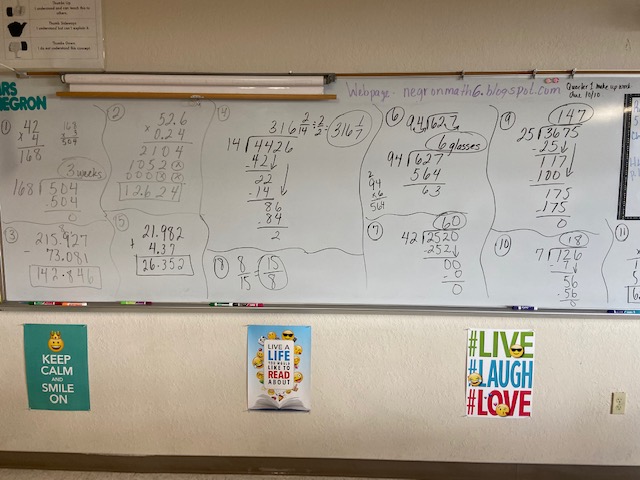 Thumbs Up
I understand and can teach this to others.
Thumb Sideways
I understand but can't explain it.
Thumbs Down
I do not understand the concept.
RS
NEGRON
Webpage- negronmath6.blogspot.com
Quarter 1 make up work
Due 10/10
①
42
× 4
168
168
3
504
3 weeks
168 504
-504
0
②
52.6
× 0.24
2104
1052
12.624
③
215.927
- 73.081
142.846
④
316 2/14 ÷ 2/2 = 316 1/7
14 4426
-42
22
-14
86
84
2
⑤
21.982
+ 4.37
26.352
⑧
8/15 = 15/8
⑥
94 627
6 glasses
94 627
564
63
2
94
×6
564
⑦
60
42 2520
-252
00
-0
0
⑨
147
25 3675
-25
117
-100
175
-175
0
⑩
18
7 126
7
56
-56
0
⑪
KEEP
CALM
AND
SMILE
ON
LIVE A
LIFE
YOU WOULD
LIKE TO
READ
ABOUT
#LIVE
#LAUGH
#LOVE